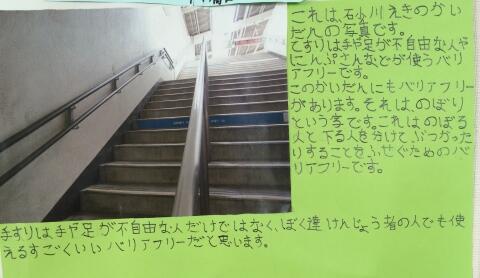 これは、石川えきのかい
だんの写真です。
てすりは手や足が不自由な人や
にんぷさんなどが使うバリ
アフリーです。
このかいだんにもバリアフリー
があります。それは、のぼり
という字です。これは、のぼる
人と下る人を分けて、ぶつかった
りすることをふせぐためのバ
リアフリーです。
手すりは手や足が不自由な人だけではなく、ぼく達けんじょう者の人でも使
えるすごくいいバリアフリーだと思います。